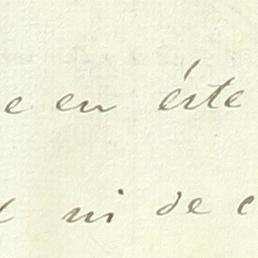 e en éste
ni de c